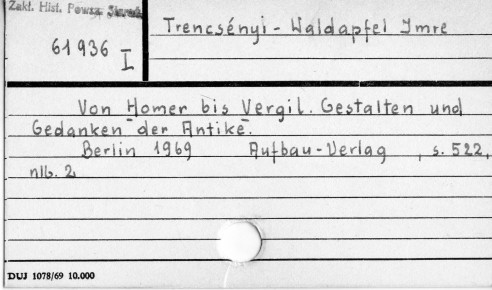 Zakł. Hist. Powsz. Staroż.
61936
I
Trencsényi-Waldapfel Imre
Von Homer bis Vergil. Gestalten und
Gedanken der Antike.
Berlin 1969 Aufbau-Verlag, s. 522,
nlb. 2
DUJ 1078/69 10.000